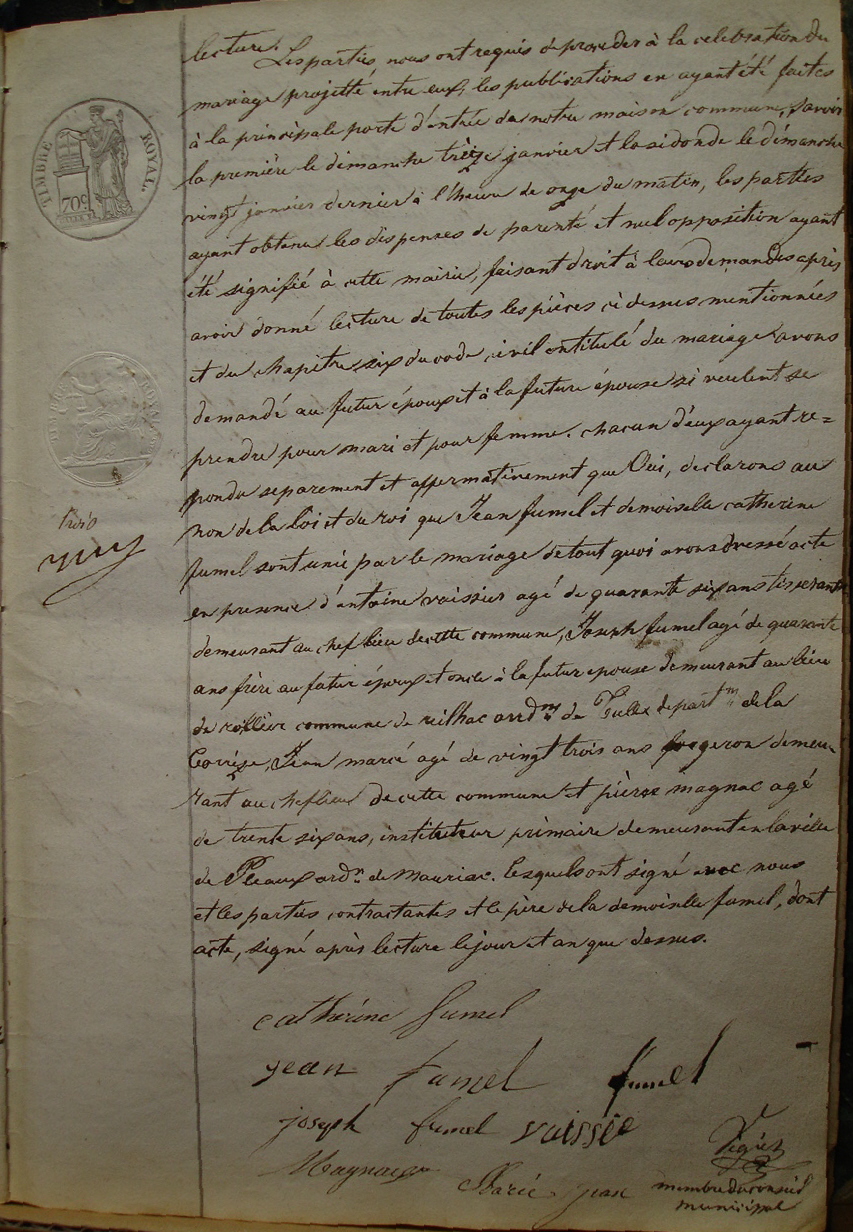 TIMBRE ROYAL.
70c
trois
lecture. Les parties nous ont requis de proceder à la celebration du
mariage projetté entre eux, les publications en ayant été faites
à la principale porte d'entrée de notre maison commune, savoir
la première le dimanche treize janvier et la seconde le dimanche
vingt janvier dernier à l'heure de onze du matin, les parties
ayant obtenu les dispenses de parenté et nul opposition ayant
été signifié à cette mairie, faisant droit à leurs demandes après
avoir donné lecture de toutes les pièces ci dessus mentionnées
et du chapitre six du code civil entitulé du mariage avons
demandé au futur époux et à la future épouse si veulent se
prendre pour mari et pour femme. chacun d'eux ayant re=
pondu separement et affermativement que Oui, declarons au
nom de la loi et du roi que Jean fumel et demoiselle catherine
fumel sont unis par le mariage de tout quoi avons dressé acte
en presence d'antoine vaissier agé de quarante six ans tisserant
demeurant au chef lieu de cette commune, Joseph fumel agé de quarante
ans frère au futur époux et oncle à la futur epouse demeurant au lieu
de commune de reilhac ardm de Tulle departm de la
Corrèze, Jean marcé agé de vingt trois ans forgeron demeu-
rant au chef lieu de cette commune et pierre magnac agé
de trente six ans, instituteur primaire demeurant en la ville
de Pleaux ardn de Mauriac. Lesquels ont signé avec nous
et les parties contractantes et le père de la demoiselle fumel, dont
acte, signé après lecture le jour et an que dessus.
catherine fumel
jean fumel fumel
joseph fumel vaissie
Magnac jean
membre du conseil
municipal